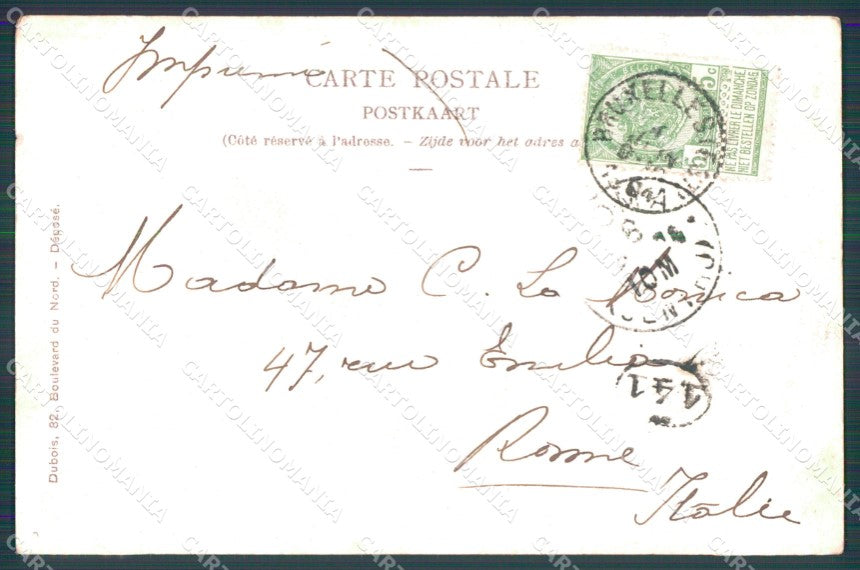 Imprimé
CARTE POSTALE
POSTKAART
(Côté réservé à l'adresse. – Zijde voor het adres a
5c
NE PAS LIVRER LE DIMANCHE
NIET BESTELLEN OP ZONDAG
BRUXELLES
Madame C. La Monica
47, rue Emilia
441
Rome
Italie
Dubois, 82, Boulevard du Nord. – Déposé.
CARTOLINOMANIA